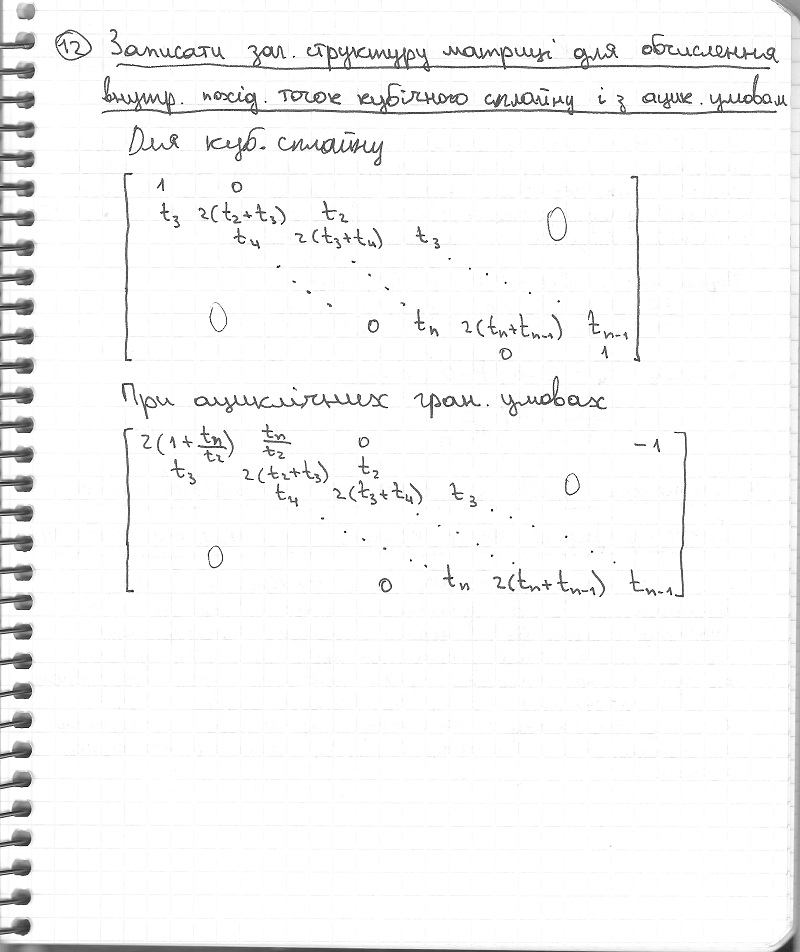 12 Записати заг. структуру матриці для обчислення
внутр. похід. точок кубічного сплайну і з ацик. умовам
Для куб. сплайну
1 0
t3 2(t2+t3) t2 0
t4 2(t3+t4) t3
0 0 tn 2(tn+tn-1) tn-1
0 1
При ациклічних гран. умовах
2(1+tn/t2) tn/t2 0 -1
t3 2(t2+t3) t2 0
t4 2(t3+t4) t3
0 0 tn 2(tn+tn-1) tn-1